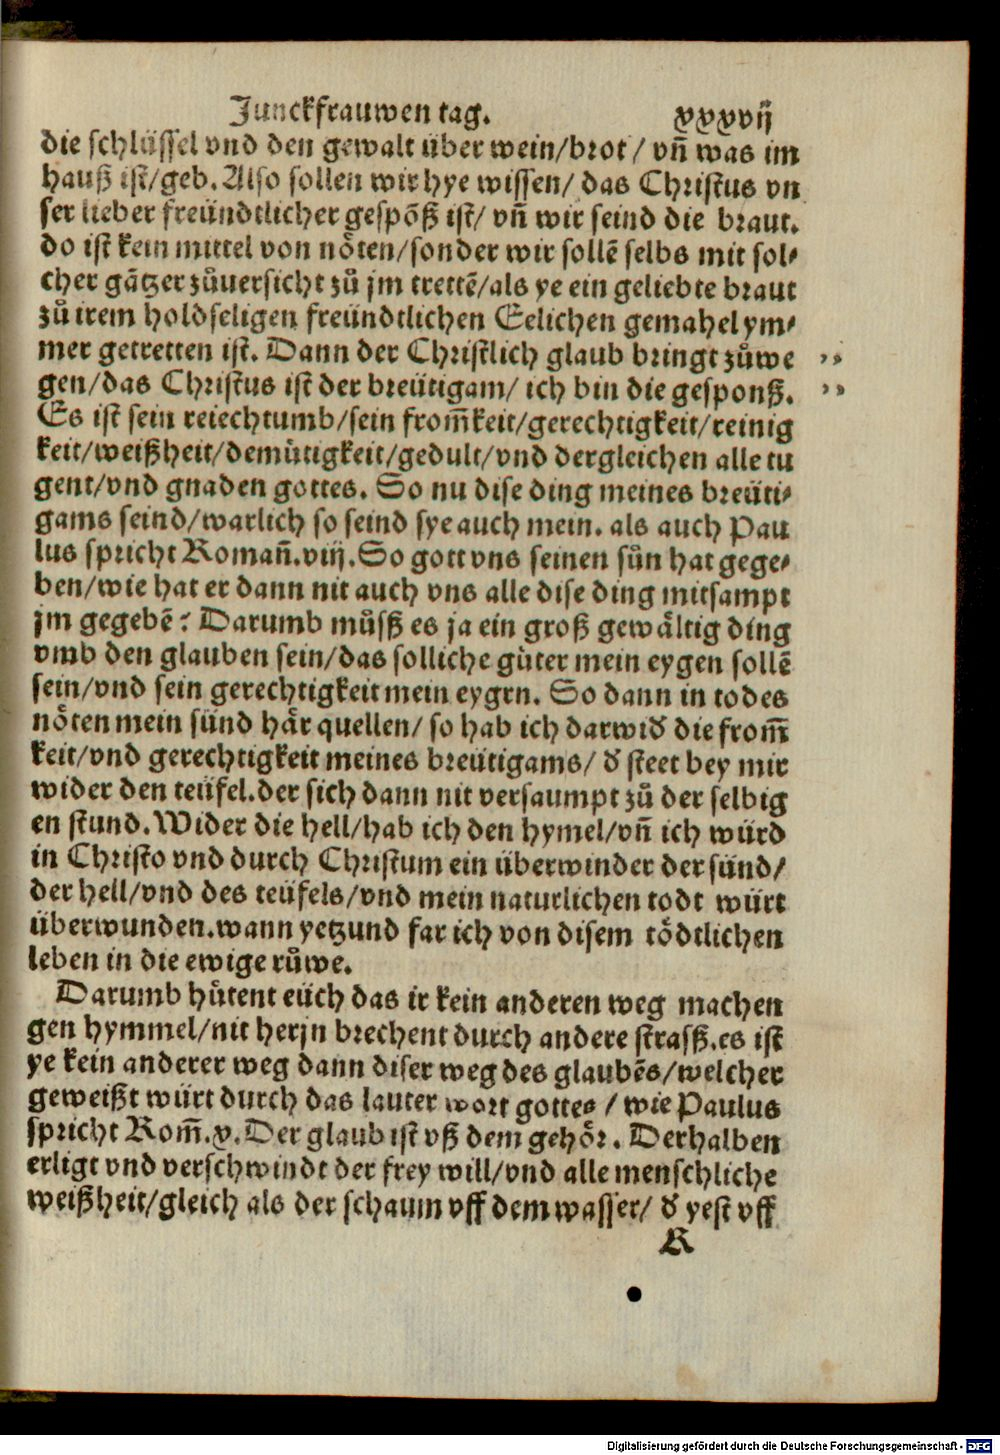 Junckfrauwen tag. xxxvij
die schlüssel vnd den gewalt über wein/brot/ vn̄ was im
hauß ist/geb. Also sollen wir hye wissen/ das Christus vn
ser lieber freündtlicher gespōß ist/ vn̄ wir seind die braut.
do ist kein mittel von nöten/sonder wir sollē selbs mit sol⸗
cher gātzer zůuersicht zů jm trettē/als ye ein geliebte braut
zů irem holdseligen freündtlichen Eelichen gemahel ym⸗
mer getretten ist. Dann der Christlich glaub bringt zůwe „
gen/das Christus ist der breütigam/ ich bin die gesponß. „
Es ist sein reiechtumb/sein from̄keit/gerechtigkeit/reinig
keit/weißheit/demütigkeit/gedult/vnd dergleichen alle tu
gent/vnd gnaden gottes. So nu dise ding meines breüti⸗
gams seind/warlich so seind sye auch mein. als auch Pau
lus spricht Roman̄.viij.So gott vns seinen sůn hat gege⸗
ben/wie hat er dann nit auch vns alle dise ding mitsampt
jm gegebē? Darumb můsß es ja ein groß gewältig ding
vmb den glauben sein/das solliche gůter mein eygen sollē
sein/vnd sein gerechtigkeit mein eygrn. So dann in todes
nöten mein sünd här quellen/ so hab ich darwiđ die from̄
keit/vnd gerechtigkeit meines breütigams/ đ steet bey mir
wider den teüfel.der sich dann nit versaumpt zů der selbig
en stund.Wider die hell/hab ich den hymel/vn̄ ich würd
in Christo vnd durch Christum ein überwinder der sünd/
der hell/vnd des teüfels/vnd mein naturlichen todt würt
überwunden.wann yetzund far ich von disem tödtlichen
leben in die ewige růwe.
Darumb hůtent eüch das ir kein anderen weg machen
gen hymmel/nit herjn brechent durch andere strasß.es ist
ye kein anderer weg dann diser weg des glaubēs/welcher
geweißt würt durch das lauter wort gottes / wie Paulus
spricht Rom̄.x.Der glaub ist vß dem gehör. Derhalben
erligt vnd verschwindt der frey will/vnd alle menschliche
weißheit/gleich als der schaum vff dem wasser/ đ yest vff
K
Digitalisierung gefördert durch die Deutsche Forschungsgemeinschaft - DFG